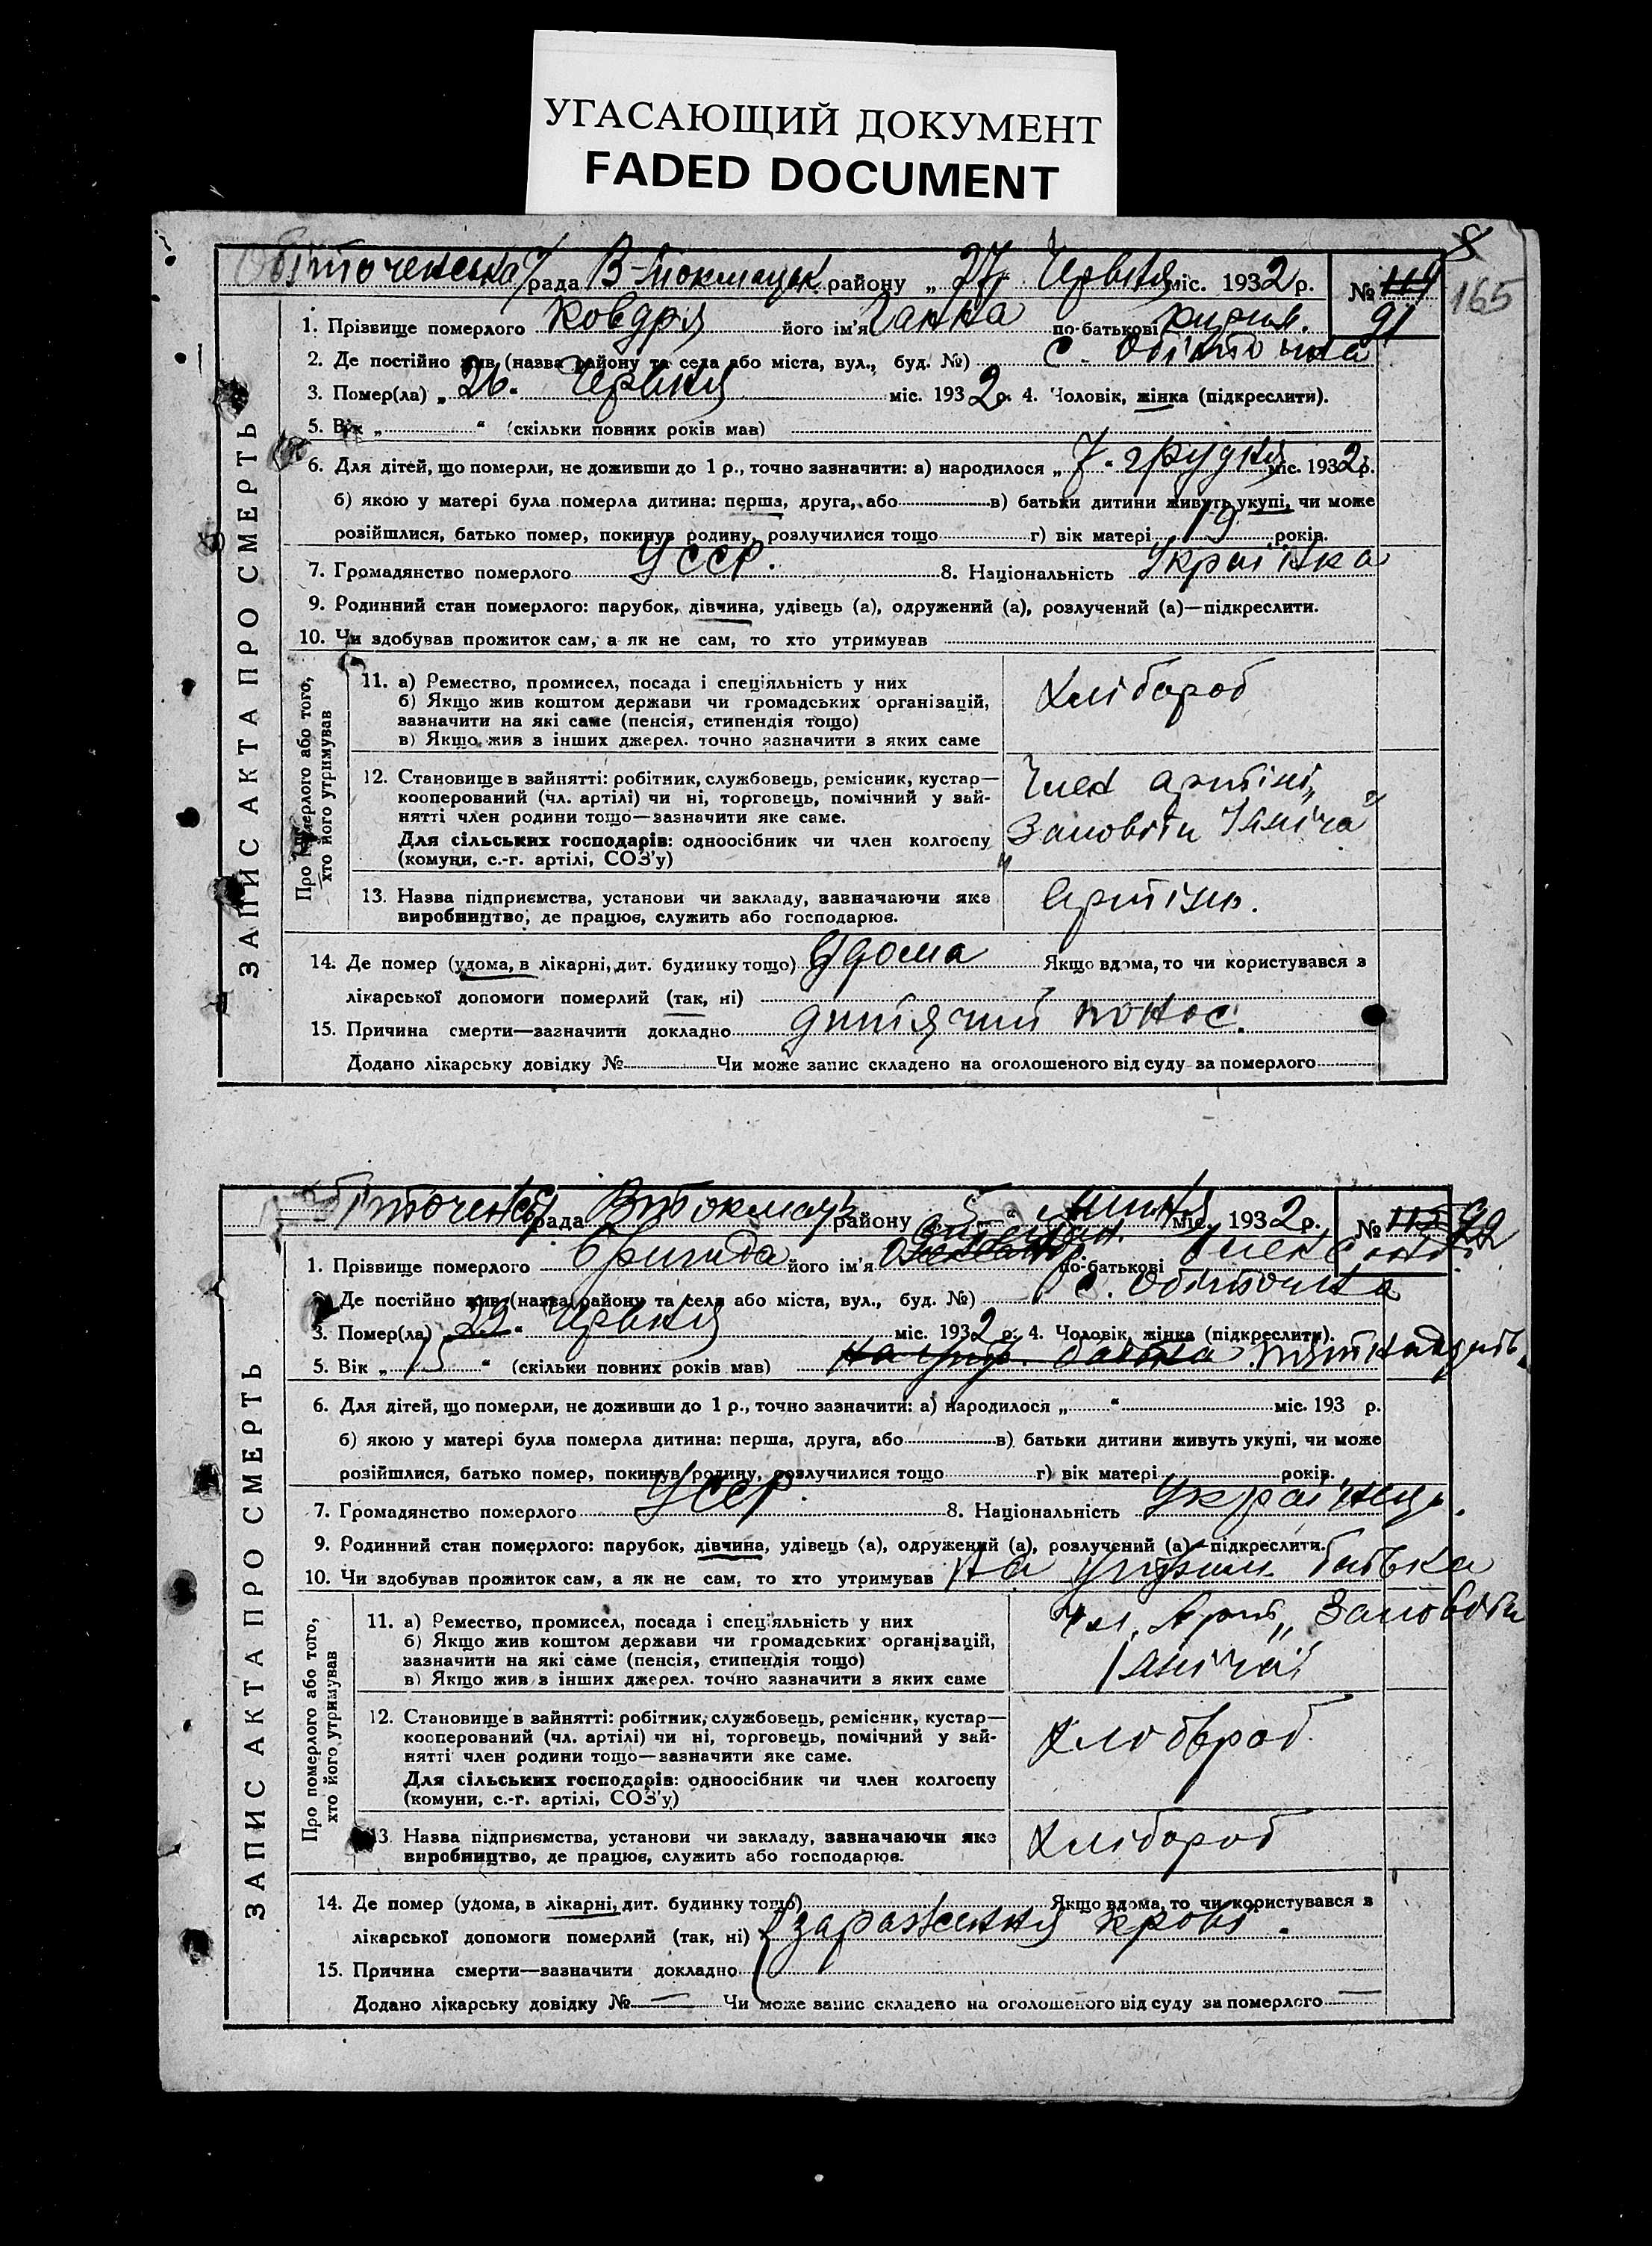 УГАСАЮЩИЙ ДОКУМЕНТ
FADED DOCUMENT
165
Обіточенська рада В-Токмацьк. району „27“ Червня міс. 1932 р. № 114
91
1. Прізвище померлого Ковдря його ім'я Ганна по-батькові
2. Де постійно жив (назва району та села або міста, вул., буд. №) с. Обіточна
3. Помер(ла) „26“ Червня міс. 1932 р. 4. Чоловік, жінка (підкреслити).
5. Вік „ “ (скільки повних років мав)
6. Для дітей, що померли, не доживши до 1 р., точно зазначити: а) народилося „7“ грудня міс. 1932 р.
б) якою у матері була померла дитина: перша, друга, або в) батьки дитини живуть укупі, чи може
розійшлися, батько помер, покинув родину, розлучилися тощо г) вік матері 19 років.
7. Громадянство померлого УССР. 8. Національність Українка
9. Родинний стан померлого: парубок, дівчина, удівець (а), одружений (а), розлучений (а)—підкреслити.
10. Чи здобував прожиток сам, а як не сам, то хто утримував
ЗАПИС АКТА ПРО СМЕРТЬ
Про померлого або того,
хто його утримував
11. а) Ремество, промисел, посада і спеціяльність у них
б) Якщо жив коштом держави чи громадських організацій,
зазначити на які саме (пенсія, стипендія тощо)
в) Якщо жив з інших джерел. точно зазначити з яких саме
Хлібороб
12. Становище в зайнятті: робітник, службовець, ремісник, кустар—
кооперований (чл. артілі) чи ні, торговець, помічний у зай-
нятті член родини тощо—зазначити яке саме.
Для сільських господарів: одноосібник чи член колгоспу
(комуни, с.-г. артілі, СОЗ'у)
Член артілі „
Заповіти Ілліча“
13. Назва підприємства, установи чи закладу, зазначаючи яке
виробництво, де працює, служить або господарює.
Артіль.
14. Де помер (удома, в лікарні, дит. будинку тощо) Удома Якщо вдома, то чи користувався з
лікарської допомоги померлий (так, ні)
15. Причина смерти—зазначити докладно дитячий понос.
Додано лікарську довідку № Чи може запис складено на оголошеного від суду за померлого
Обіточенська рада В Токмацьк району „5“ Липня міс. 1932 р. № 115 92
1. Прізвище померлого Бригида його ім'я по-батькові Олександ.
2. Де постійно жив (назва району та села або міста, вул., буд. №) с. Обіточна
3. Помер(ла) „29“ Червня міс. 1932 р. 4. Чоловік, жінка (підкреслити).
5. Вік „15“ (скільки повних років мав) на утр. батька пятнадцять
6. Для дітей, що померли, не доживши до 1 р., точно зазначити: а) народилося „ “ міс. 193 р.
б) якою у матері була померла дитина: перша, друга, або в) батьки дитини живуть укупі, чи може
розійшлися, батько помер, покинув родину, розлучилися тощо г) вік матері років.
7. Громадянство померлого УССР. 8. Національність Українець.
9. Родинний стан померлого: парубок, дівчина, удівець (а), одружений (а), розлучений (а)—підкреслити.
10. Чи здобував прожиток сам, а як не сам, то хто утримував На утрим. батька
ЗАПИС АКТА ПРО СМЕРТЬ
Про померлого або того,
хто його утримував
11. а) Ремество, промисел, посада і спеціяльність у них
б) Якщо жив коштом держави чи громадських організацій,
зазначити на які саме (пенсія, стипендія тощо)
в) Якщо жив з інших джерел. точно зазначити з яких саме
Чл. Арт. „Заповіти
Ілліча“
12. Становище в зайнятті: робітник, службовець, ремісник, кустар—
кооперований (чл. артілі) чи ні, торговець, помічний у зай-
нятті член родини тощо—зазначити яке саме.
Для сільських господарів: одноосібник чи член колгоспу
(комуни, с.-г. артілі, СОЗ'у)
Хлібороб.
13. Назва підприємства, установи чи закладу, зазначаючи яке
виробництво, де працює, служить або господарює.
Хлібороб
14. Де помер (удома, в лікарні, дит. будинку тощо) Якщо вдома, то чи користувався з
лікарської допомоги померлий (так, ні) зараження крові.
15. Причина смерти—зазначити докладно
Додано лікарську довідку № — Чи може запис складено на оголошеного від суду за померлого —